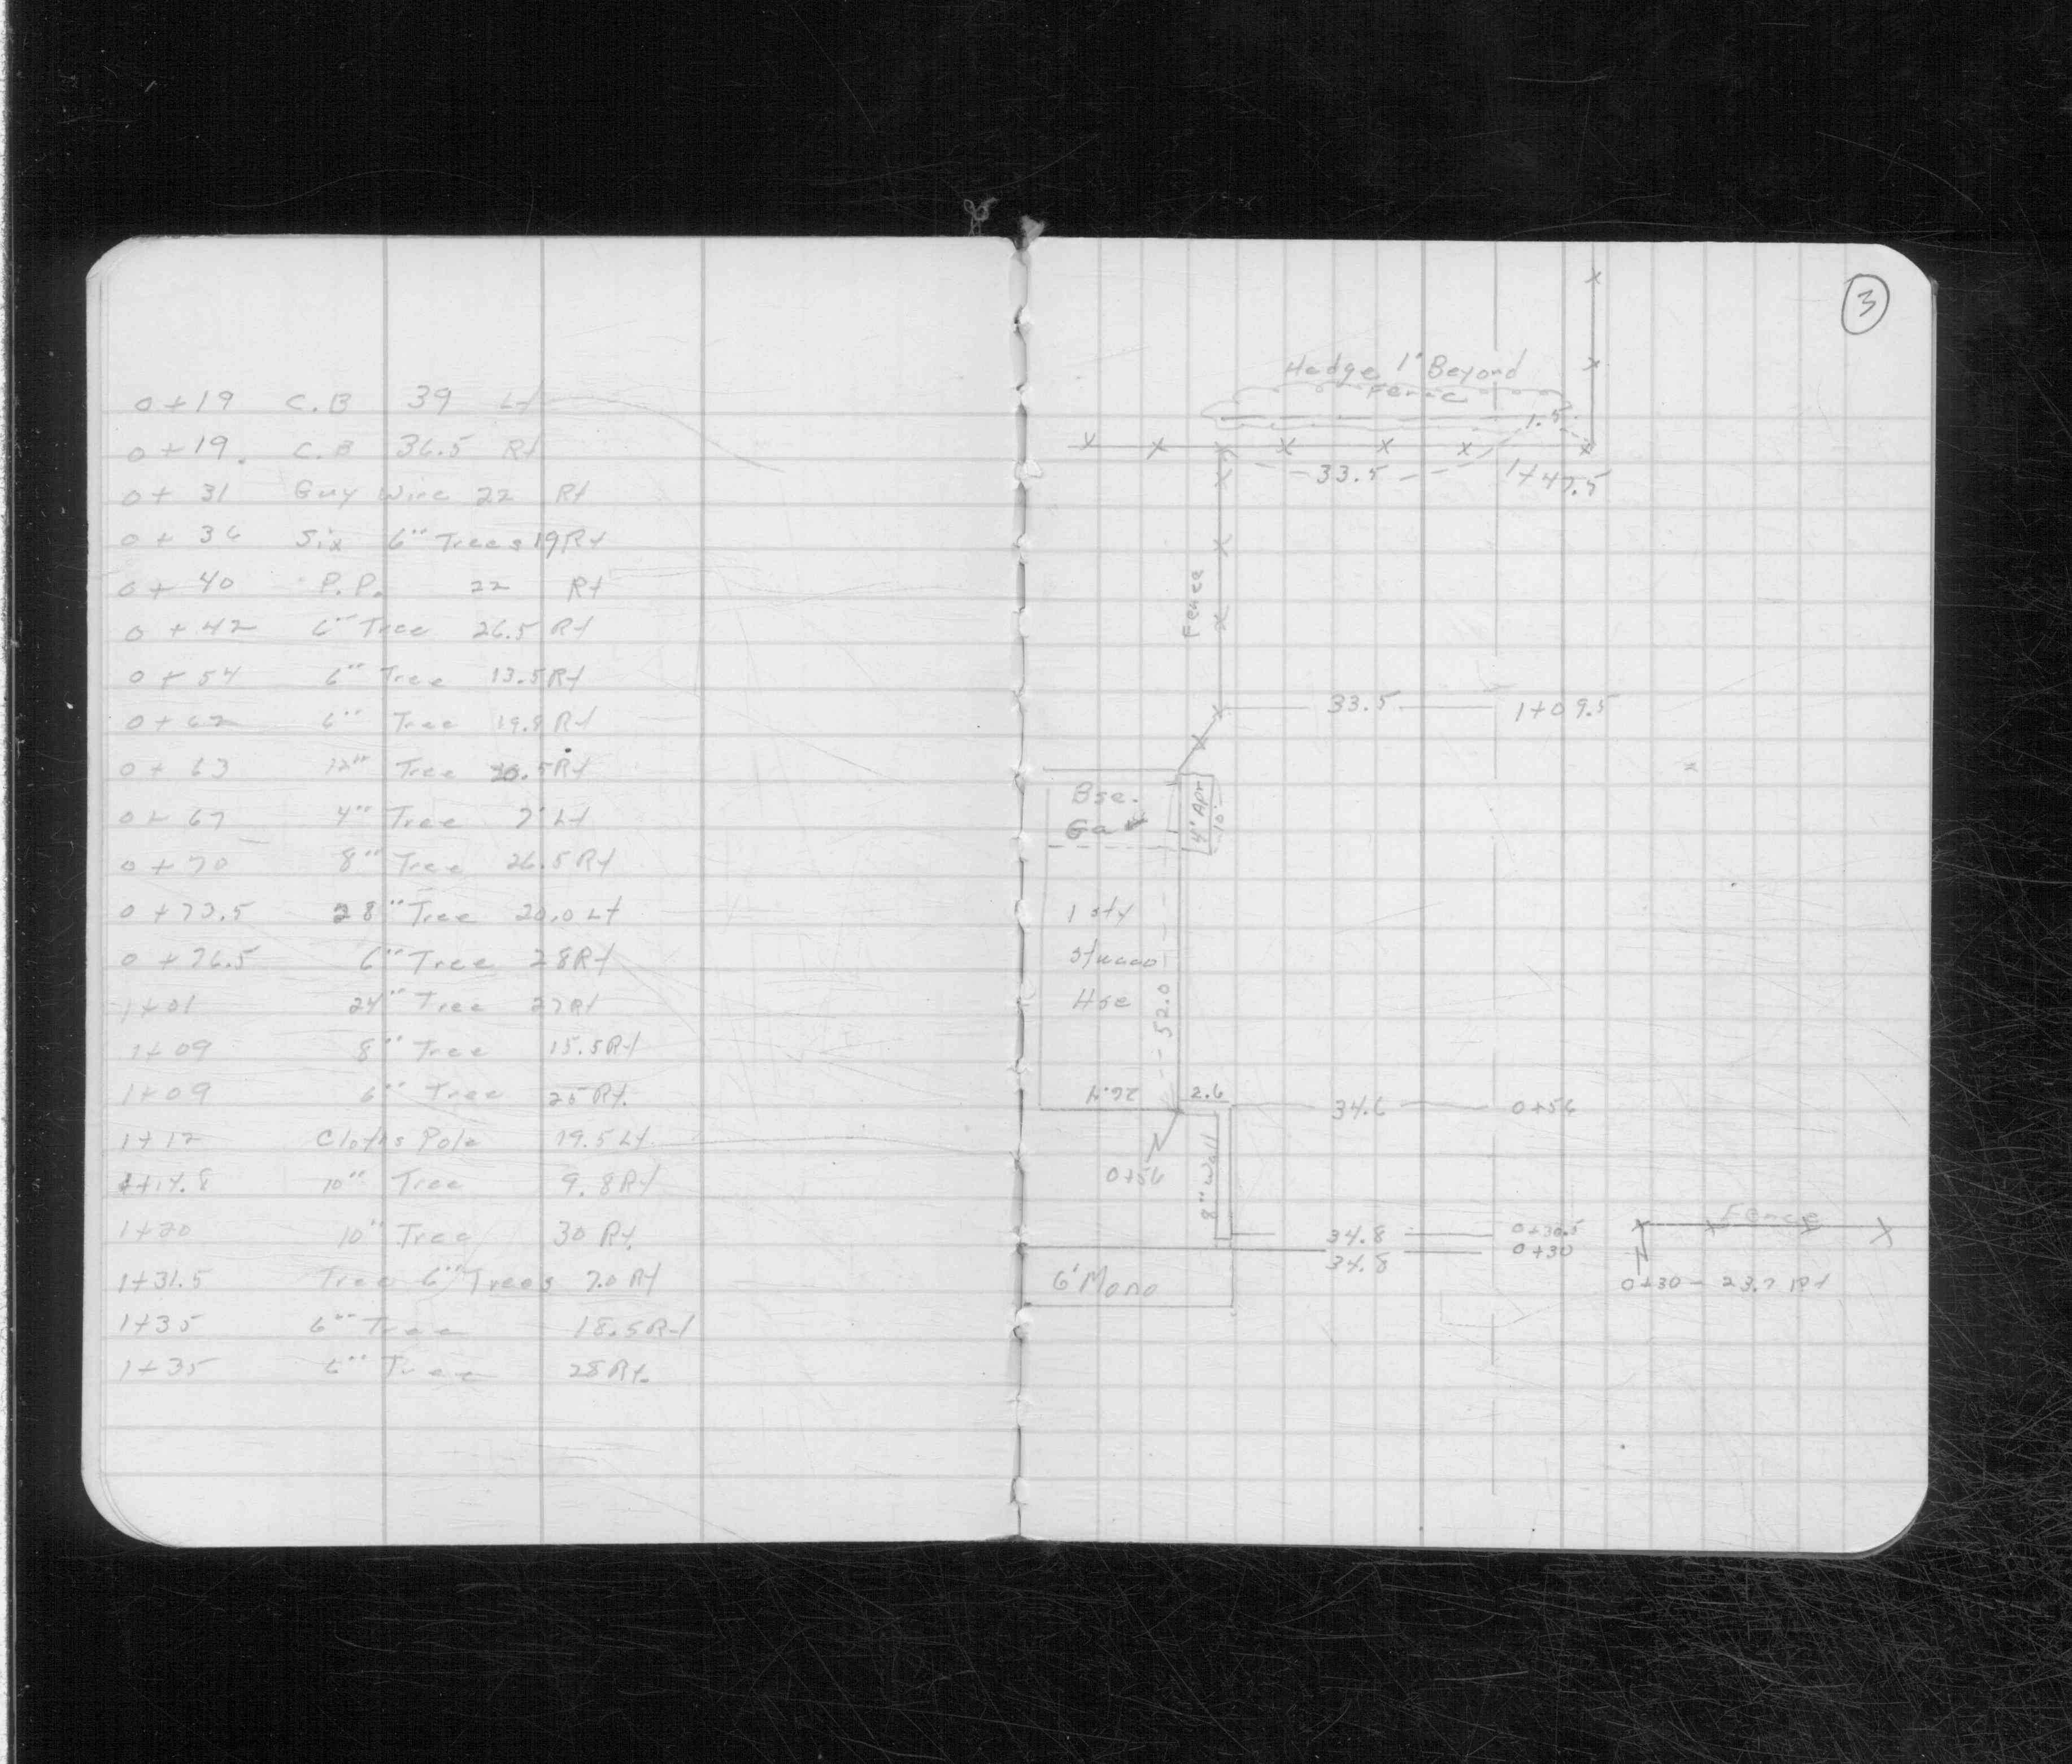 0+19 C.B 39 Lt
0+19. C.B 36.5 Rt
0+31 Guy Wire 22 Rt
0+36 Six 6" Trees 19 Rt
0+40 P.P. 22 Rt
0+42 6" Tree 26.5 Rt
0+54 6" Tree 13.5 Rt
0+62 6" Tree 19.9 Rt
0+63 12" Tree 20.5 Rt
0+67 4" Tree 7' Lt
0+70 8" Tree 26.5 Rt
0+73.5 28" Tree 20.0 Lt
0+76.5 6" Tree 28 Rt
1+01 24" Tree 27 Rt
1+09 8" Tree 15.5 Rt
1+09 6" Tree 25 Rt.
1+12 Cloths Pole 19.5 Lt
1+14.8 10" Tree 9.8 Rt
1+20 10" Tree 30 Rt.
1+31.5 Tree 6" Trees 7.0 Rt
1+35 6" Tree 18.5 Rt
1+35 6" Tree 28 Rt.
3
Hedge 1' Beyond
Fence
1.5
33.5 1+47.5
Fence
33.5 1+09.5
Bse.
Ga
4' Apr
10'
1 sty
Stucco
Hse
52.0
26.4
2.6 34.6 0+56
0+56
8" Wall
Fence
34.8 0+30.5
34.8 0+30
6' Mono
0+30 - 23.7 Rt